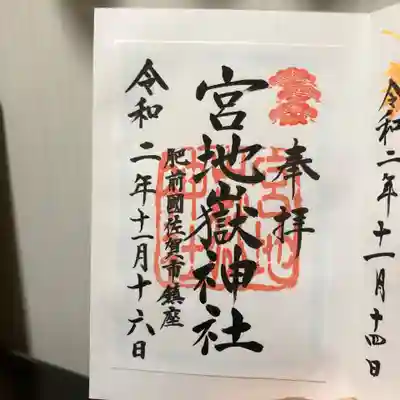 令和二年十一月十四日
奉拝
宮地嶽神社
肥前國佐賀市鎮座
令和二年十一月十六日
宮地嶽神社